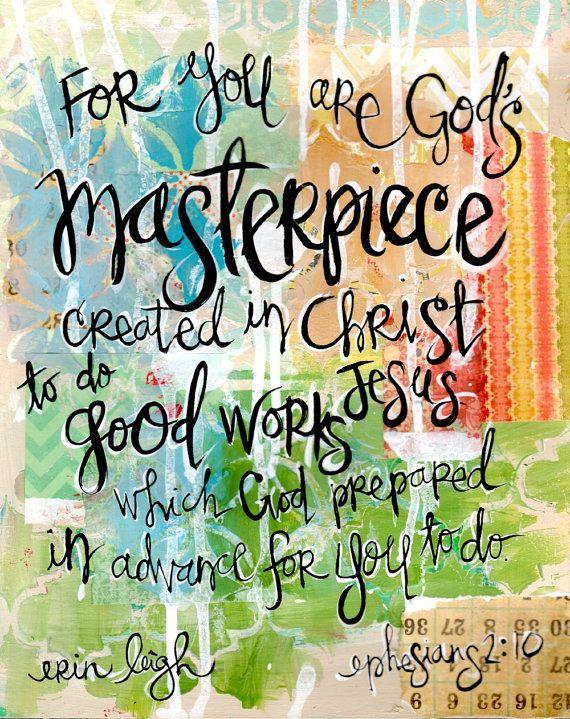 For you are God's
masterpiece
created in Christ
to do Jesus
good works
which God prepared
in advance for you to do.
erin leigh
ephesians 2:10
36 20 25 30 0
12 16 23 9